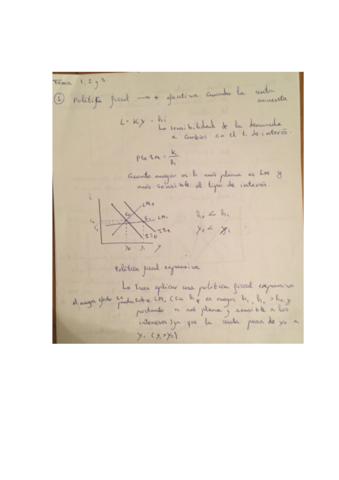 Tema 1, 2 y 3.
① Política fiscal → + efectiva cuando la renta
aumenta
L = Ky - hi
La sensibilidad de la demanda
a cambios en el t. de interés
Pte LM = k/h
Cuanto mayor es h más plana es LM y
más sensible al tipo de interés.
i
LM0
LM1
IS0
y0 y1 y
h0 < h1
y0 < y1
Política fiscal expansiva
aplicar una política fiscal expansiva
el mayor efecto se produce LM1 (Su h es mayor h1, h1 > h0 y
por tanto + plana y sensible a los
intereses) ya que la renta pasa de y0 a
y1 (y1 > y0)